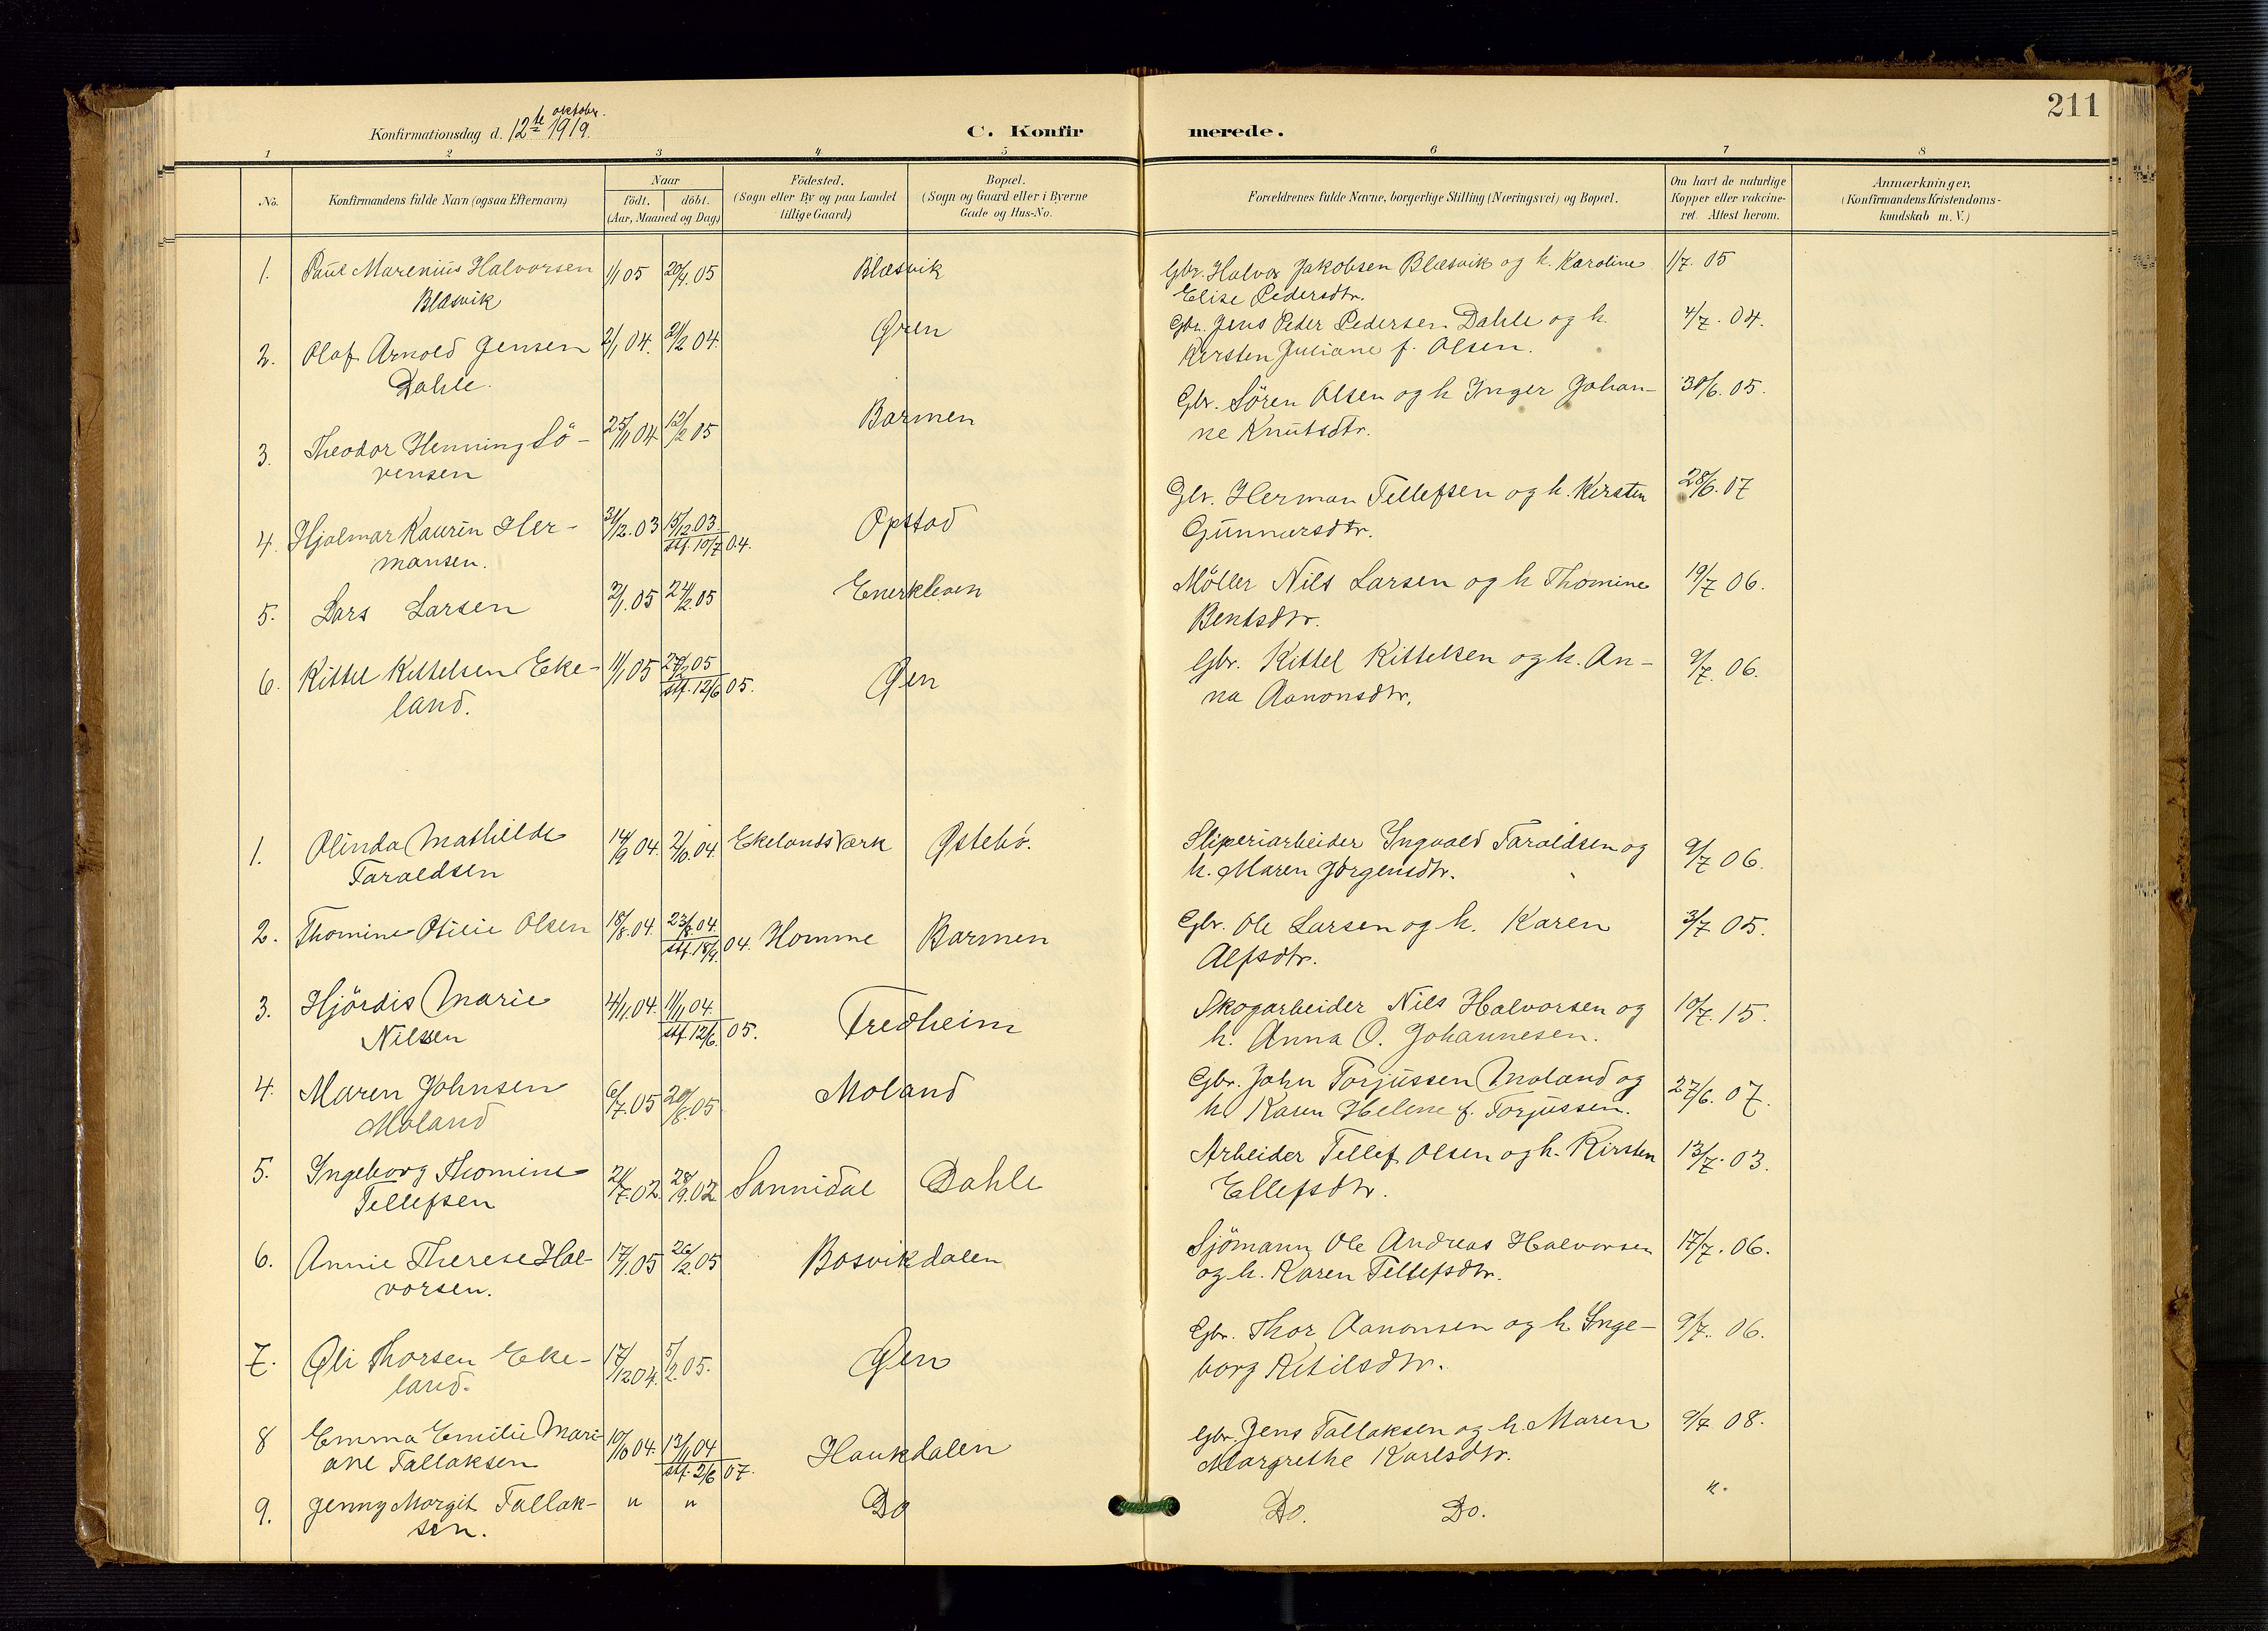 211
Konfirmationsdag d. 12te oktobr. 1919.
C. Konfir
merede.
1 2 3 4 5 6 7 8
No.
Konfirmandens fulde Navn (ogsaa Efternavn)
Naar
födt. döbt.
(Aar, Maaned og Dag)
Födested.
(Sogn eller By og paa Landet
tillige Gaard)
Bopæl.
(Sogn og Gaard eller i Byerne
Gade og Hus-No.
Forældrenes fulde Navne, borgerlige Stilling (Næringsvei) og Bopæl.
Om havt de naturlige
Kopper eller vakcine-
ret. Attest herom.
Anmærkninger,
(Konfirmandens Kristendoms-
kundskab m. V.)
1. Paul Marenius Halvorsen 1/1 05 20/4. 05 Blæsvik Gbr. Halvor Jakobsen Blæsvik og h. Karoline 1/7. 05
Blæsvik Elise Pedersdtr.
2. Olaf Arnold Jensen 2/1 04. 21/2 04. Øren Gbr. Jens Peder Pedersen Dahle og h. 4/7. 04.
Dahle. Kirsten Juliane f. Olsen.
3. Theodor Henning Sö- 25/11 04 12/2 05 Barmen Gbr. Sören Olsen og h Inger Johan- 30/6. 05.
rensen ne Knutsdtr.
4. Hjalmar Kaurin Her- 31/12. 03 15/12 03. Opstad Gbr. Herman Tellefsen og h. Kirsten 28/6. 07
mansen. stf. 10/7 04. Gunnarsdtr.
5. Lars Larsen 2/1. 05 24/2. 05 Enerkleven Möller Nils Larsen og h Thomine 19/7 06.
Bentsdtr.
6. Kittel Kittelsen Eke- 11/1 05 05 Øen Gbr. Kittel Kittelsen og h. An- 9/7. 06.
land. stf. 12/6 05. na Aanonsdtr.
1. Olinda Mathilde 14/9 04. 2/10. 04. Ekelands Værk Østebö. Sliperiarbeider Ingvald Taraldsen og 9/7 06.
Taraldsen h. Maren Jörgensdtr.
2. Thomine Otilie Olsen 18/8. 04. 23/8. 04. Homme Barmen Gbr. Ole Larsen og h. Karen 3/7 05.
stf. 18/9. 04. Alfsdtr.
3. Hjördis Marie 4/11. 04. 11/11 04. Fredheim Skogarbeider Nils Halvorsen og 10/7. 15.
Nilsen stf. 12/6. 05. h. Anna O. Johannesen.
4. Maren Johnsen 6/7. 05 20/8. 05 Moland Gbr. John Torjussen Moland og 27/6. 07.
Moland h. Karen Helene f. Torjussen.
5. Ingeborg Thomine 21/7. 02 28/9. 02 Sannidal Dahle Arbeider Tellef Olsen og h. Kirsten 13/7. 03.
Tellefsen Ellefsdtr.
6. Annie Therese Hal- 17/1. 05 26/2. 05 Bosvikdalen Sjömann Ole Andreas Halvorsen 17/7. 06.
vorsen. og h. Karen Tellefsdtr.
7. Øli Thorsen Eke- 17/12 04. 5/2. 05. Øen Gbr. Thor Aanonsen og h Inge- 9/7. 06.
land. borg Ketilsdtr.
8 Emma Emilie Mari- 10/10 04. 13/11 04 Haukdalen Gbr. Jens Tallaksen og h. Maren 9/7 08.
ane Tallaksen stf. 2/6 07. Margrethe Karlsdtr.
9. Jenny Margit Tallak- " " Do Do. Do. ".
sen.